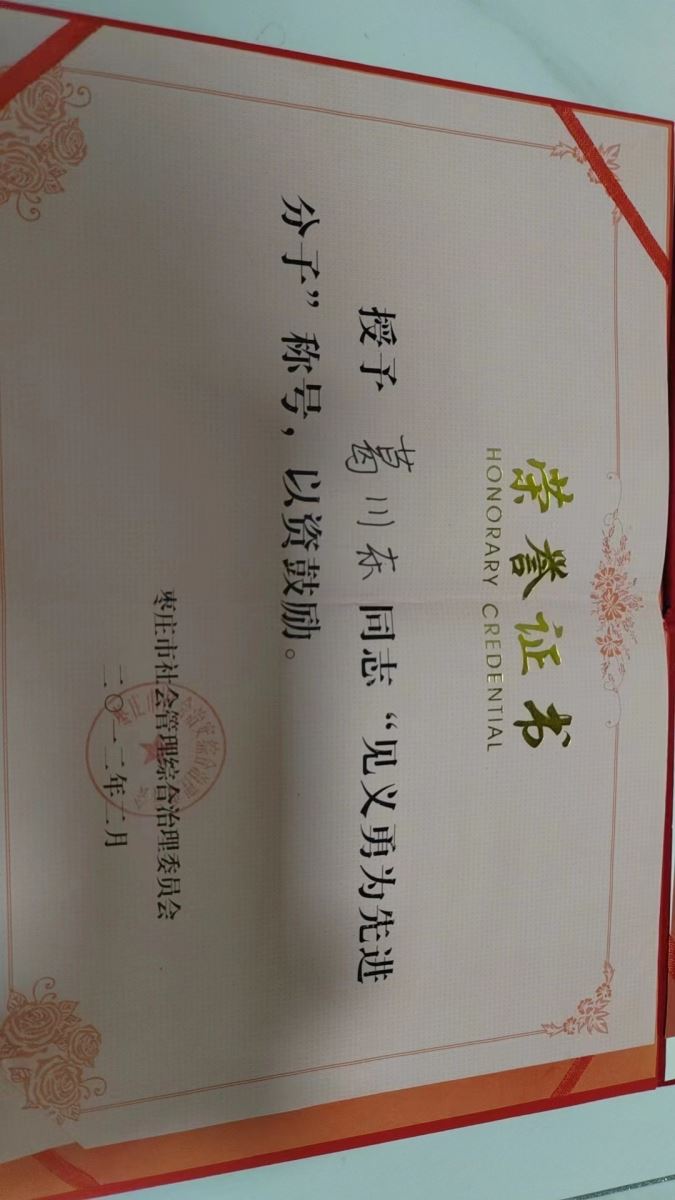 荣誉证书
HONORARY CREDENTIAL
授予 葛川东 同志“见义勇为先进
分子”称号，以资鼓励。
枣庄市社会管理综合治理委员会
二〇一二年二月